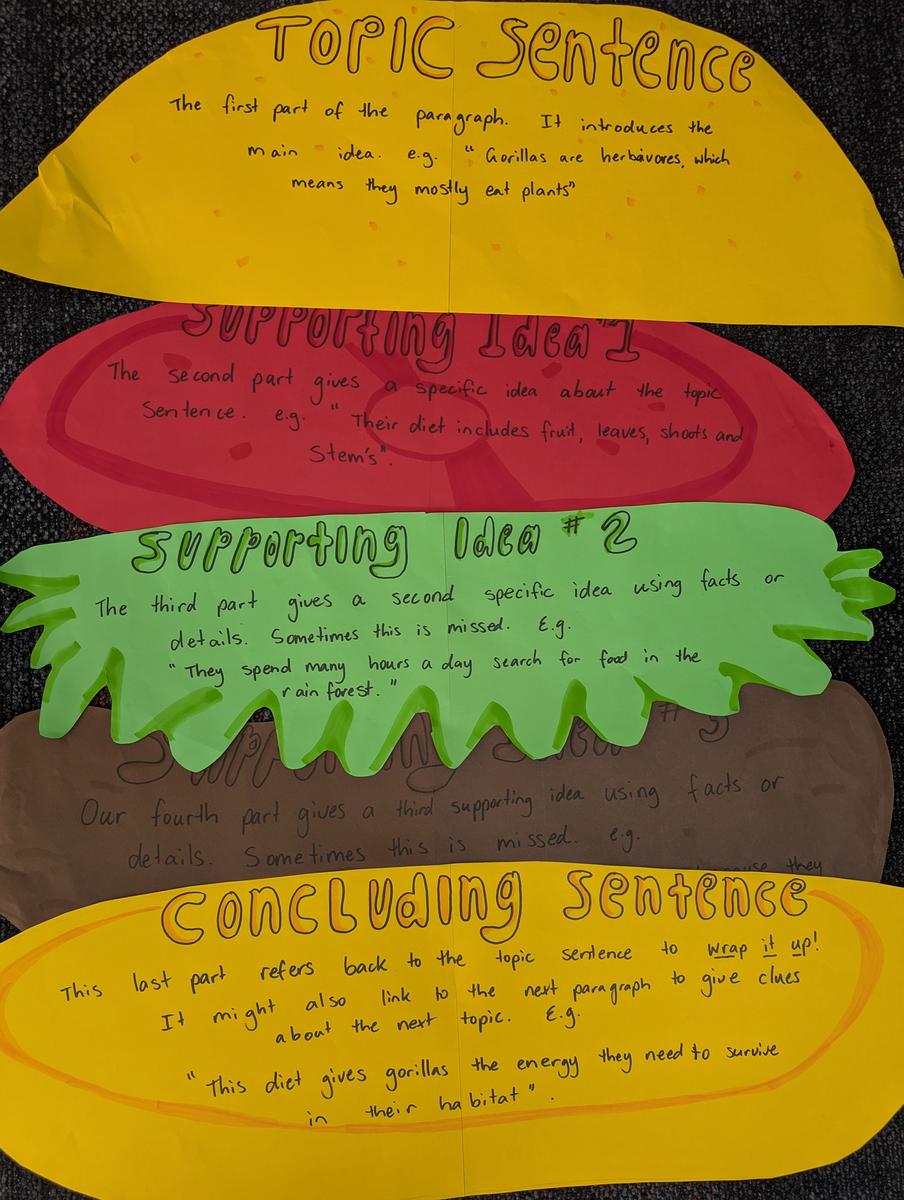 TOPIC Sentence
The first part of the paragraph. It introduces the
main idea. e.g. "Gorillas are herbivores, which
means they mostly eat plants"
Supporting Idea #1
The second part gives a specific idea about the topic
Sentence. e.g. "Their diet includes fruit, leaves, shoots and
Stem's".
Supporting Idea # 2
The third part gives a second specific idea using facts or
details. Sometimes this is missed. E.g.
"They spend many hours a day search for food in the
rain forest."
Supporting Idea # 3
Our fourth part gives a third supporting idea using facts or
details. Sometimes this is missed. e.g.
they
Concluding Sentence
This last part refers back to the topic sentence to wrap it up!
It might also link to the next paragraph to give clues
about the next topic. E.g.
"This diet gives gorillas the energy they need to survive
in their habitat".